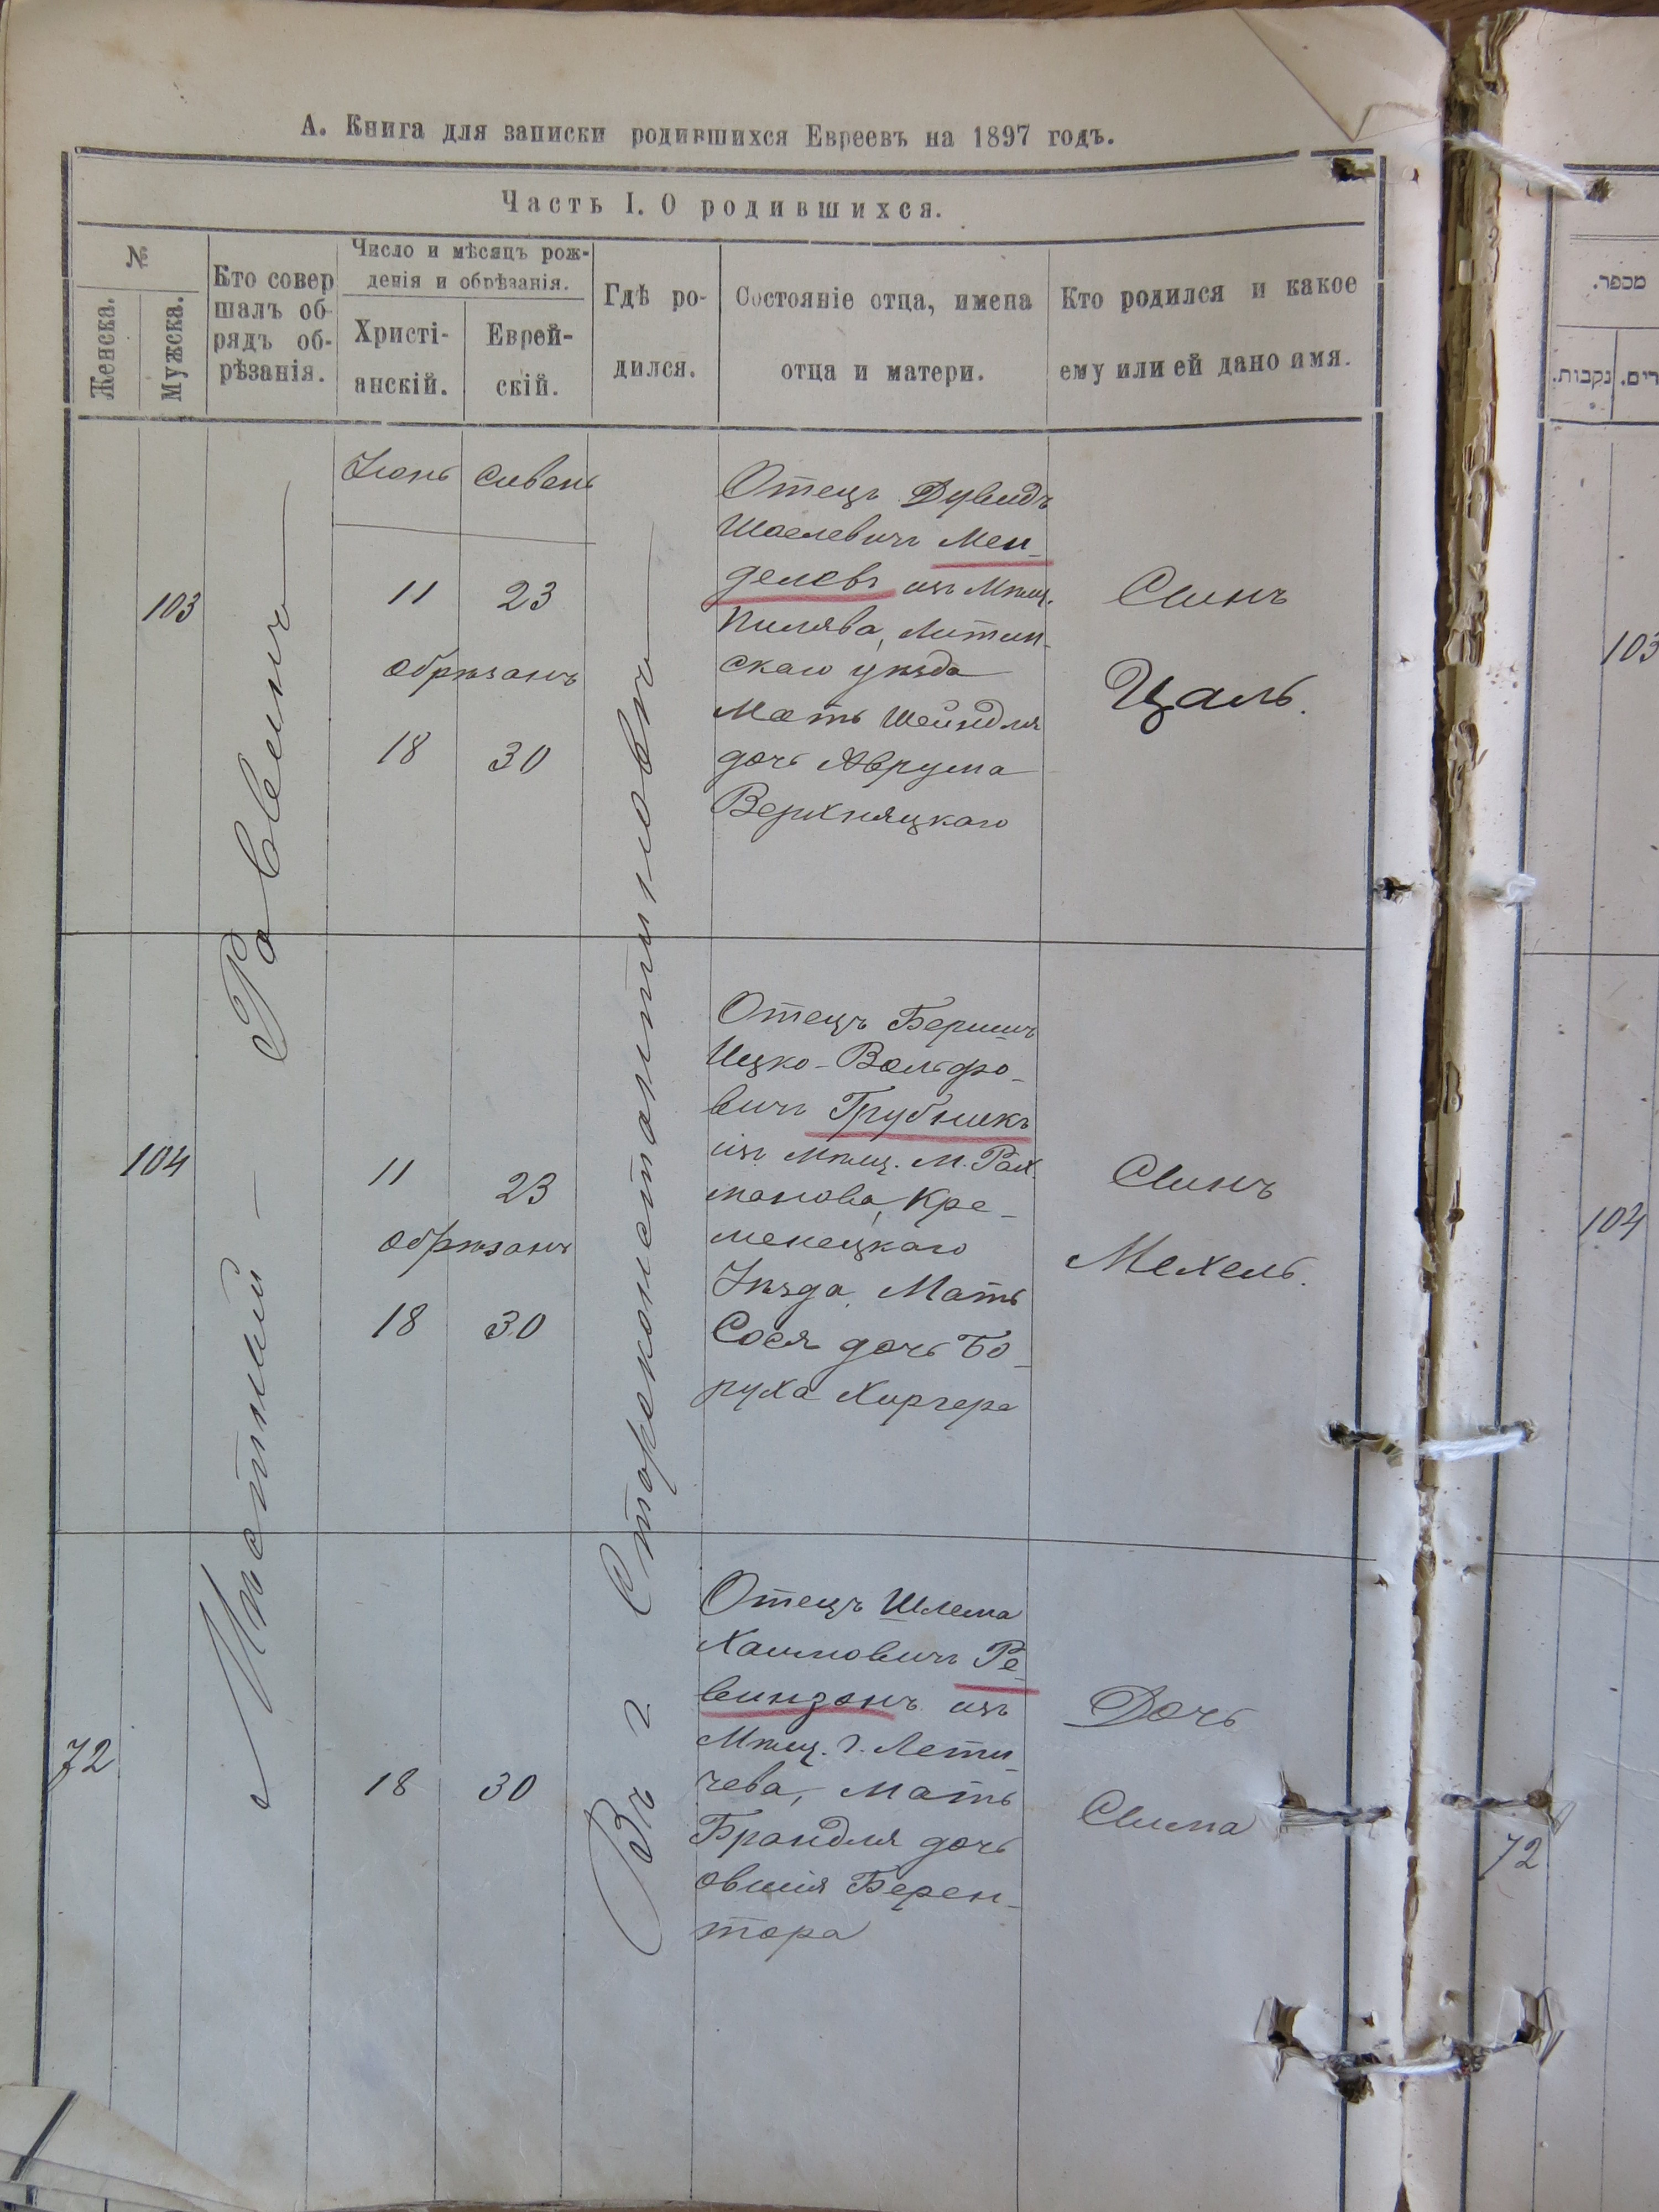 А. Книга для записки родившихся Евреевъ на 1897 годъ.
Часть I. О родившихся.
№
Женска.
Мужска.
Кто совер
шалъ об-
рядъ об-
рѣзанія.
Число и мѣсяцъ рож-
денія и обрѣзанія.
Христі-
анскій.
Еврей-
скій.
Гдѣ ро-
дился.
Состояніе отца, имена
отца и матери.
Кто родился и какое
ему или ей дано имя.
Мѣстный - Раввинъ
Въ г Староконстантиновъ
103
Іюнь Сивень
11 23
обрѣзанъ
18 30
Отецъ Дувидъ
Шаелевичъ Мен-
делевъ изъ Мѣщ.
Пилява, Литин-
скаго уѣзда
Мать Шейндля
дочь Аврума
Верхняцкаго
Сынъ
Цаль.
104
11 23
обрѣзанъ
18 30
Отецъ Беришъ
Ицко-Вольфо-
вичъ Трубникъ
изъ Мѣщ. М. Рах
манова, Кре-
менецкаго
Уѣзда, Мать
Сося дочь Бо-
руха Хиргера
Сынъ
Мехель.
72
18 30
Отецъ Шлема
Хаимовичъ Ре-
винзонъ изъ
Мѣщ. г. Лети-
чева, Мать
Брандля дочь
овшія Берен-
тора
Дочь
Сима
מספר.
נקבות.
רים.
103
104
72